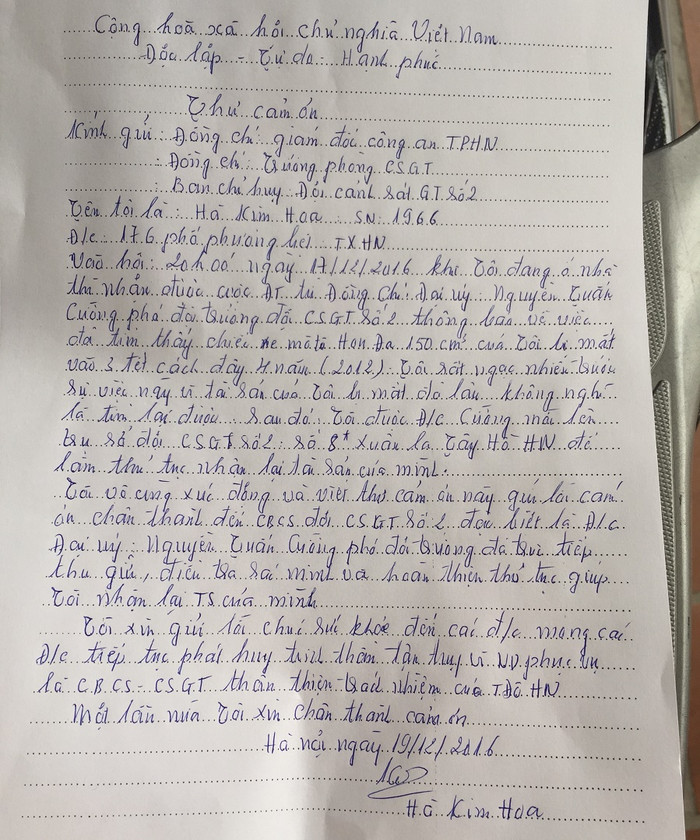 Cộng hoà xã hội chủ nghĩa Việt Nam
Độc lập - Tự do - Hạnh phúc
Thư cảm ơn
Kính gửi: Đồng chí giám đốc công an T.PHN
: Đồng chí Trưởng phòng CSGT
: Ban chỉ huy Đội cảnh sát GT số 2
Tên tôi là: Hà Kim Hoa SN: 1966
Đ/c: 176 phố phương liệt TXHN
Vào hồi: 20h00' ngày 17/12/2016 khi Tôi đang ở nhà
thì nhận được cuộc ĐT từ Đồng Chí Đại úy Nguyễn Tuấn
Cường phó đội trưởng đội CSGT số 2 thông báo về việc
đã tìm thấy chiếc xe môtô Hon Đa 150 cm³ của Tôi bị mất
vào 3 tết cách đây 4 năm (2012). Tôi rất ngạc nhiên trước
sự việc này vì tài sản của Tôi bị mất đã lâu không nghĩ
là tìm lại được. Sau đó Tôi được Đ/c Cường mời lên
trụ sở đội CSGT số 2: số 8* Xuân la Tây Hồ HN để
làm thủ tục nhận lại tài sản của mình.
Tôi vô cùng xúc động và viết thư cảm ơn này gửi lời cảm
ơn chân thành đến CBCS đội CSGT số 2 đặc biệt là Đ/c
Đại úy: Nguyễn Tuấn Cường phó đội trưởng đã trực tiếp
thu giữ, điều tra xác minh và hoàn thiện thủ tục giúp
Tôi nhận lại TS của mình
Tôi xin gửi lời chúc sức khoẻ đến các đ/c mong các
Đ/c tiếp tục phát huy tinh thần tận tụy vì ND phục vụ
là C.B.C.S - CSGT thân thiện trách nhiệm của TĐô HN
Một lần nữa Tôi xin chân thành cảm ơn
Hà nội ngày 19/12/2016
Hà Kim Hoa